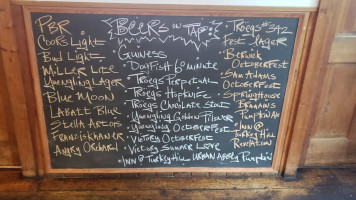 PBR
Coors Light
Bud Light
Miller Lite
Yuengling Lager
Blue Moon
Labatt Blue
Stella Artois
Franziskaner
Angry Orchard
Beers on Tap
Guiness
DogFish 60 minute
Troegs Perpetual
Troegs Hopknife
Troegs Chocolate Stout
Yuengling Golden Pilsner
Yuengling Octoberfest
Victory Octoberfest
Victory Summer Love
Inn @ Turkey Hill Urban Abbey Pumpkin
Troegs #342
Fest Lager
Berwick
Octoberfest
Sam Adams
Octoberfest
Springhouse
Braaains
Pumpkin Ale
Inn @
Turkey Hill
Revelation